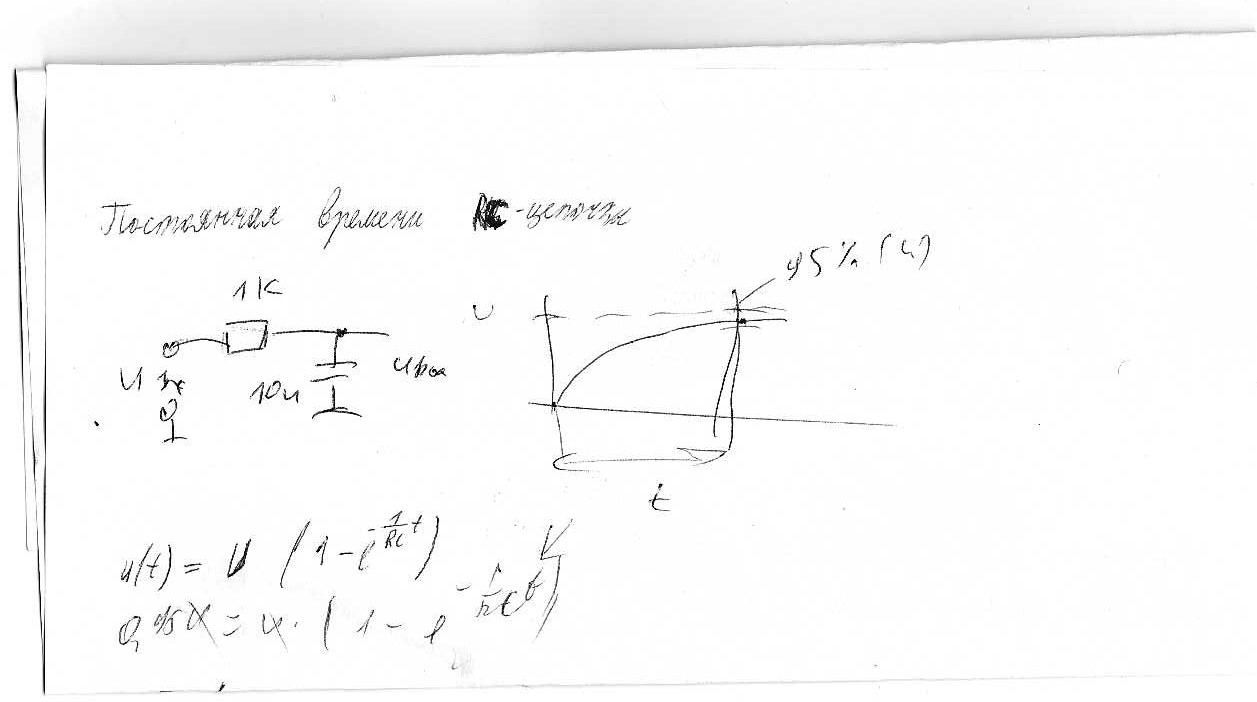 Постоянная времени RC-цепочки
1К
95% (U)
U
U вх
10н
Uвых
t
u(t) = U (1 - e^{-\frac{1}{RC}t})
0,95U = U · (1 - e^{-\frac{1}{RC}t})